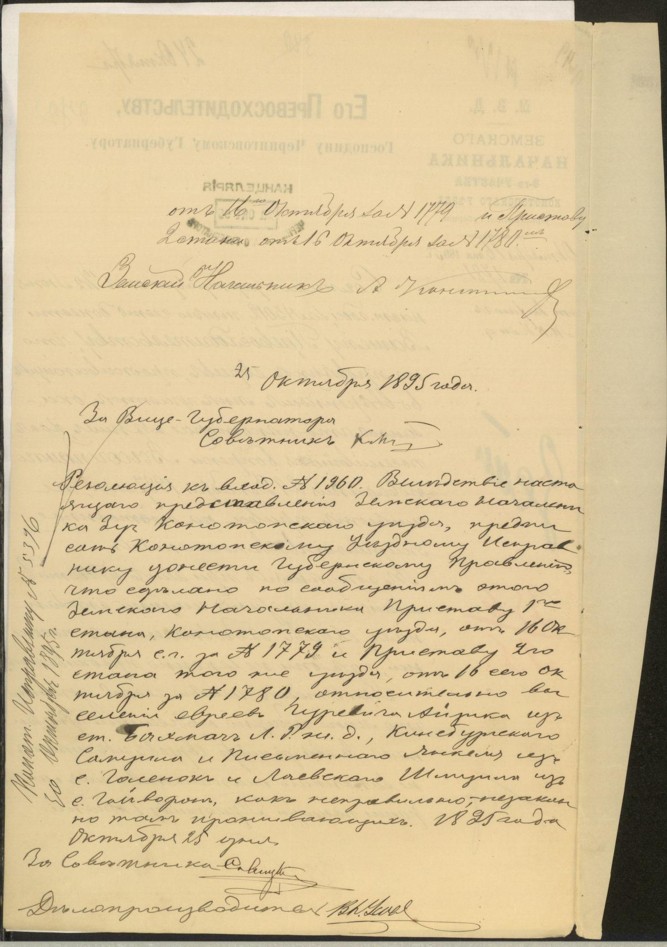 отъ 16 Октября за № 1779 и Приставу
2 стана отъ 16 Октября за № 1780.
Земскій Начальникъ А.
25 Октября 1895 года.
За Вице-Губернатора
Совѣтникъ
Резолюція къ вход. № 1960. Вслѣдствіе насто
ящаго представленія Земскаго Начальни
ка 3 уч. Конотопскаго уѣзда, предпи
сать Конотопскому Уѣздному Исправ
нику донести Губернскому Правленію,
что сдѣлано по сообщеніямъ этого
Земскаго Начальника Приставу 1го
стана, Конотопскаго уѣзда, отъ 16 Ок
тября с.г. за № 1779 и Приставу 2го
стана того же уѣзда, отъ 16 сего Ок
тября за № 1780, относительно вы
селенія евреевъ Гуревича Айзика изъ
ст. Бахмачъ Л. Р. ж. д., Кинсбурскаго
Самуила и Письменнаго Янкеля изъ
с. Голенокъ и Лаевскаго Шмуила изъ
с. Гайворонъ, какъ неправильно, незакон
но тамъ проживающихъ. 1895 года
Октября 25 дня.
За Совѣтника
Дѣлопроизводитель
Конот. Исправнику № 5376
30 Октября 1895 г.
Его Превосходительству,
Господину Черниговскому Губернатору.
М. В. Д.
ЗЕМСКАГО
НАЧАЛЬНИКА
КАНЦЕЛЯРІЯ